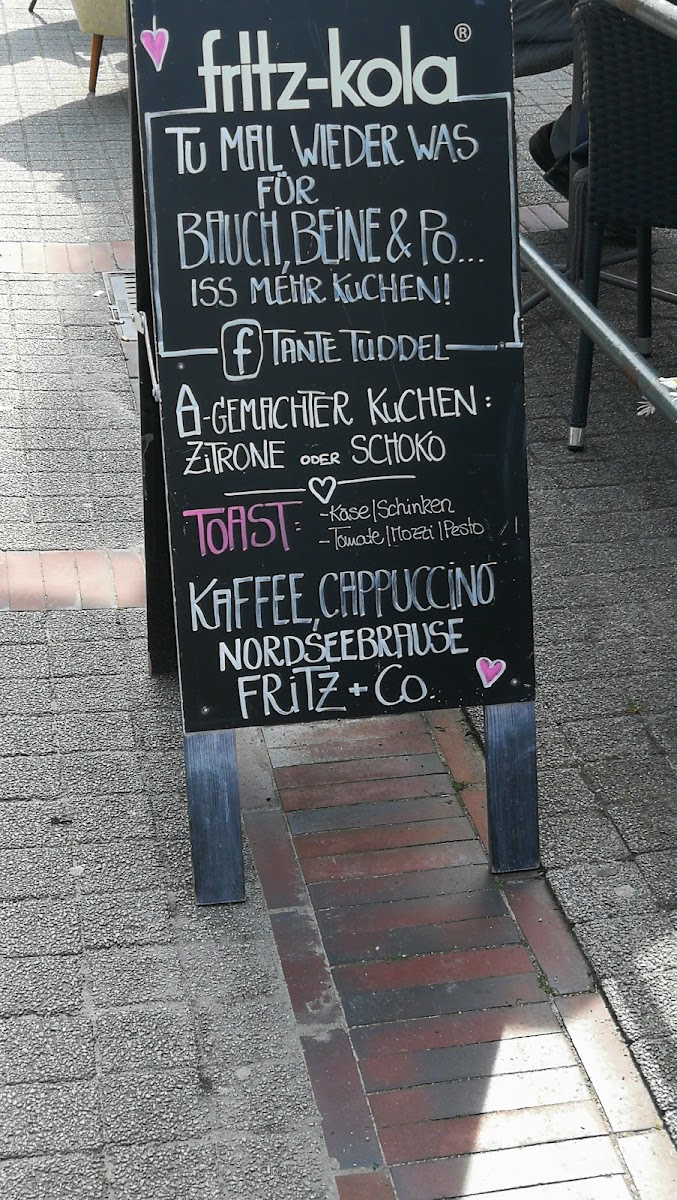 fritz-kola®
TU MAL WIEDER WAS
FÜR
BAUCH, BEINE & PO...
ISS MEHR KUCHEN!
f TANTE TUDDEL
-GEMACHTER KUCHEN:
ZITRONE ODER SCHOKO
TOAST: -Käse|Schinken
-Tomate|Mozzi|Pesto
KAFFEE, CAPPUCCINO
NORDSEEBRAUSE
FRITZ + CO.